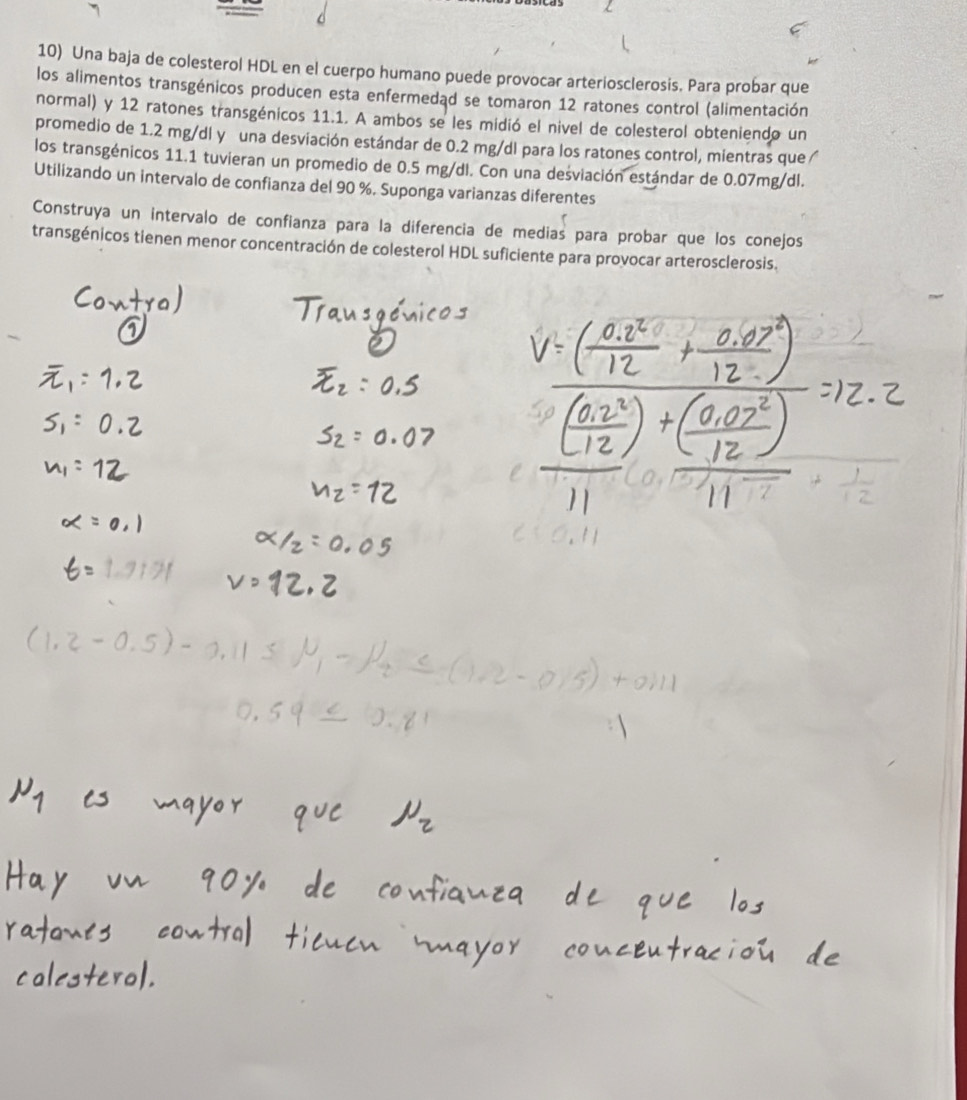 10) Una baja de colesterol HDL en el cuerpo humano puede provocar arteriosclerosis. Para probar que
los alimentos transgénicos producen esta enfermedad se tomaron 12 ratones control (alimentación
normal) y 12 ratones transgénicos 11.1. A ambos se les midió el nivel de colesterol obteniendo un
promedio de 1.2 mg/dl y una desviación estándar de 0.2 mg/dl para los ratones control, mientras que
los transgénicos 11.1 tuvieran un promedio de 0.5 mg/dl. Con una desviación estándar de 0.07mg/dl.
Utilizando un intervalo de confianza del 90 %. Suponga varianzas diferentes
Construya un intervalo de confianza para la diferencia de medias para probar que los conejos
transgénicos tienen menor concentración de colesterol HDL suficiente para provocar arterosclerosis.
Control Transgénicos
① ②
x̄₁ = 1.2 x̄₂ = 0.5
s₁ = 0.2 s₂ = 0.07
n₁ = 12 n₂ = 12
V = (0.2²/12 + 0.07²/12) / ((0.2²/12)/11 + (0.07²/12)/11) = 12.2
α = 0.1 α/2 = 0.05
t = v = 12.2
(1.2 - 0.5) - 0.11 ≤ μ₁ - μ₂ ≤ (1.2 - 0.5) + 0.11
0.59 ≤ 0.81
μ₁ es mayor que μ₂
Hay un 90% de confianza de que los
ratones control tienen mayor concentración de
colesterol.